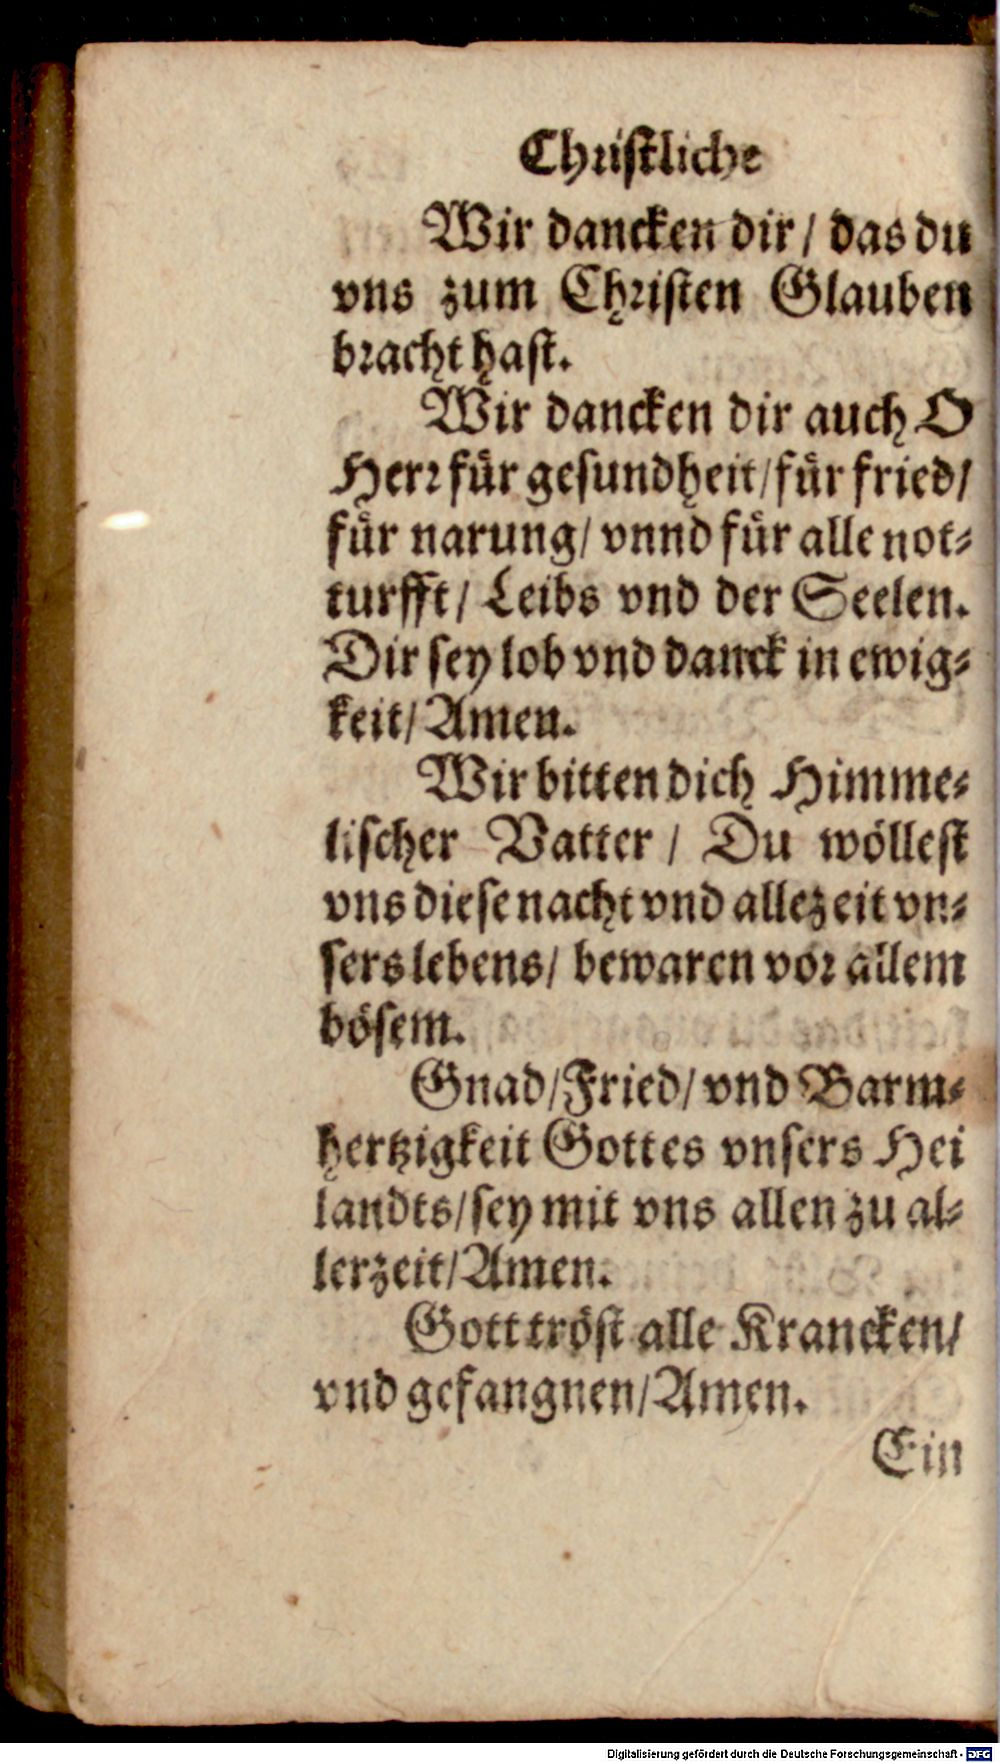 Christliche
Wir dancken dir / das du
vns zum Christen Glauben
bracht hast.
Wir dancken dir auch O
Herr für gesundheit / für fried /
für narung / vnnd für alle not⸗
turfft / Leibs vnd der Seelen.
Dir sey lob vnd danck in ewig⸗
keit / Amen.
Wir bitten dich Himme⸗
lischer Vatter / Du wöllest
vns diese nacht vnd allezeit vn⸗
sers lebens / bewaren vor allem
bösem.
Gnad / Fried / vnd Barm⸗
hertzigkeit Gottes vnsers Hei
landts / sey mit vns allen zu al⸗
lerzeit / Amen.
Gott tröst alle Krancken /
vnd gefangnen / Amen.
Ein
Digitalisierung gefördert durch die Deutsche Forschungsgemeinschaft - DFG